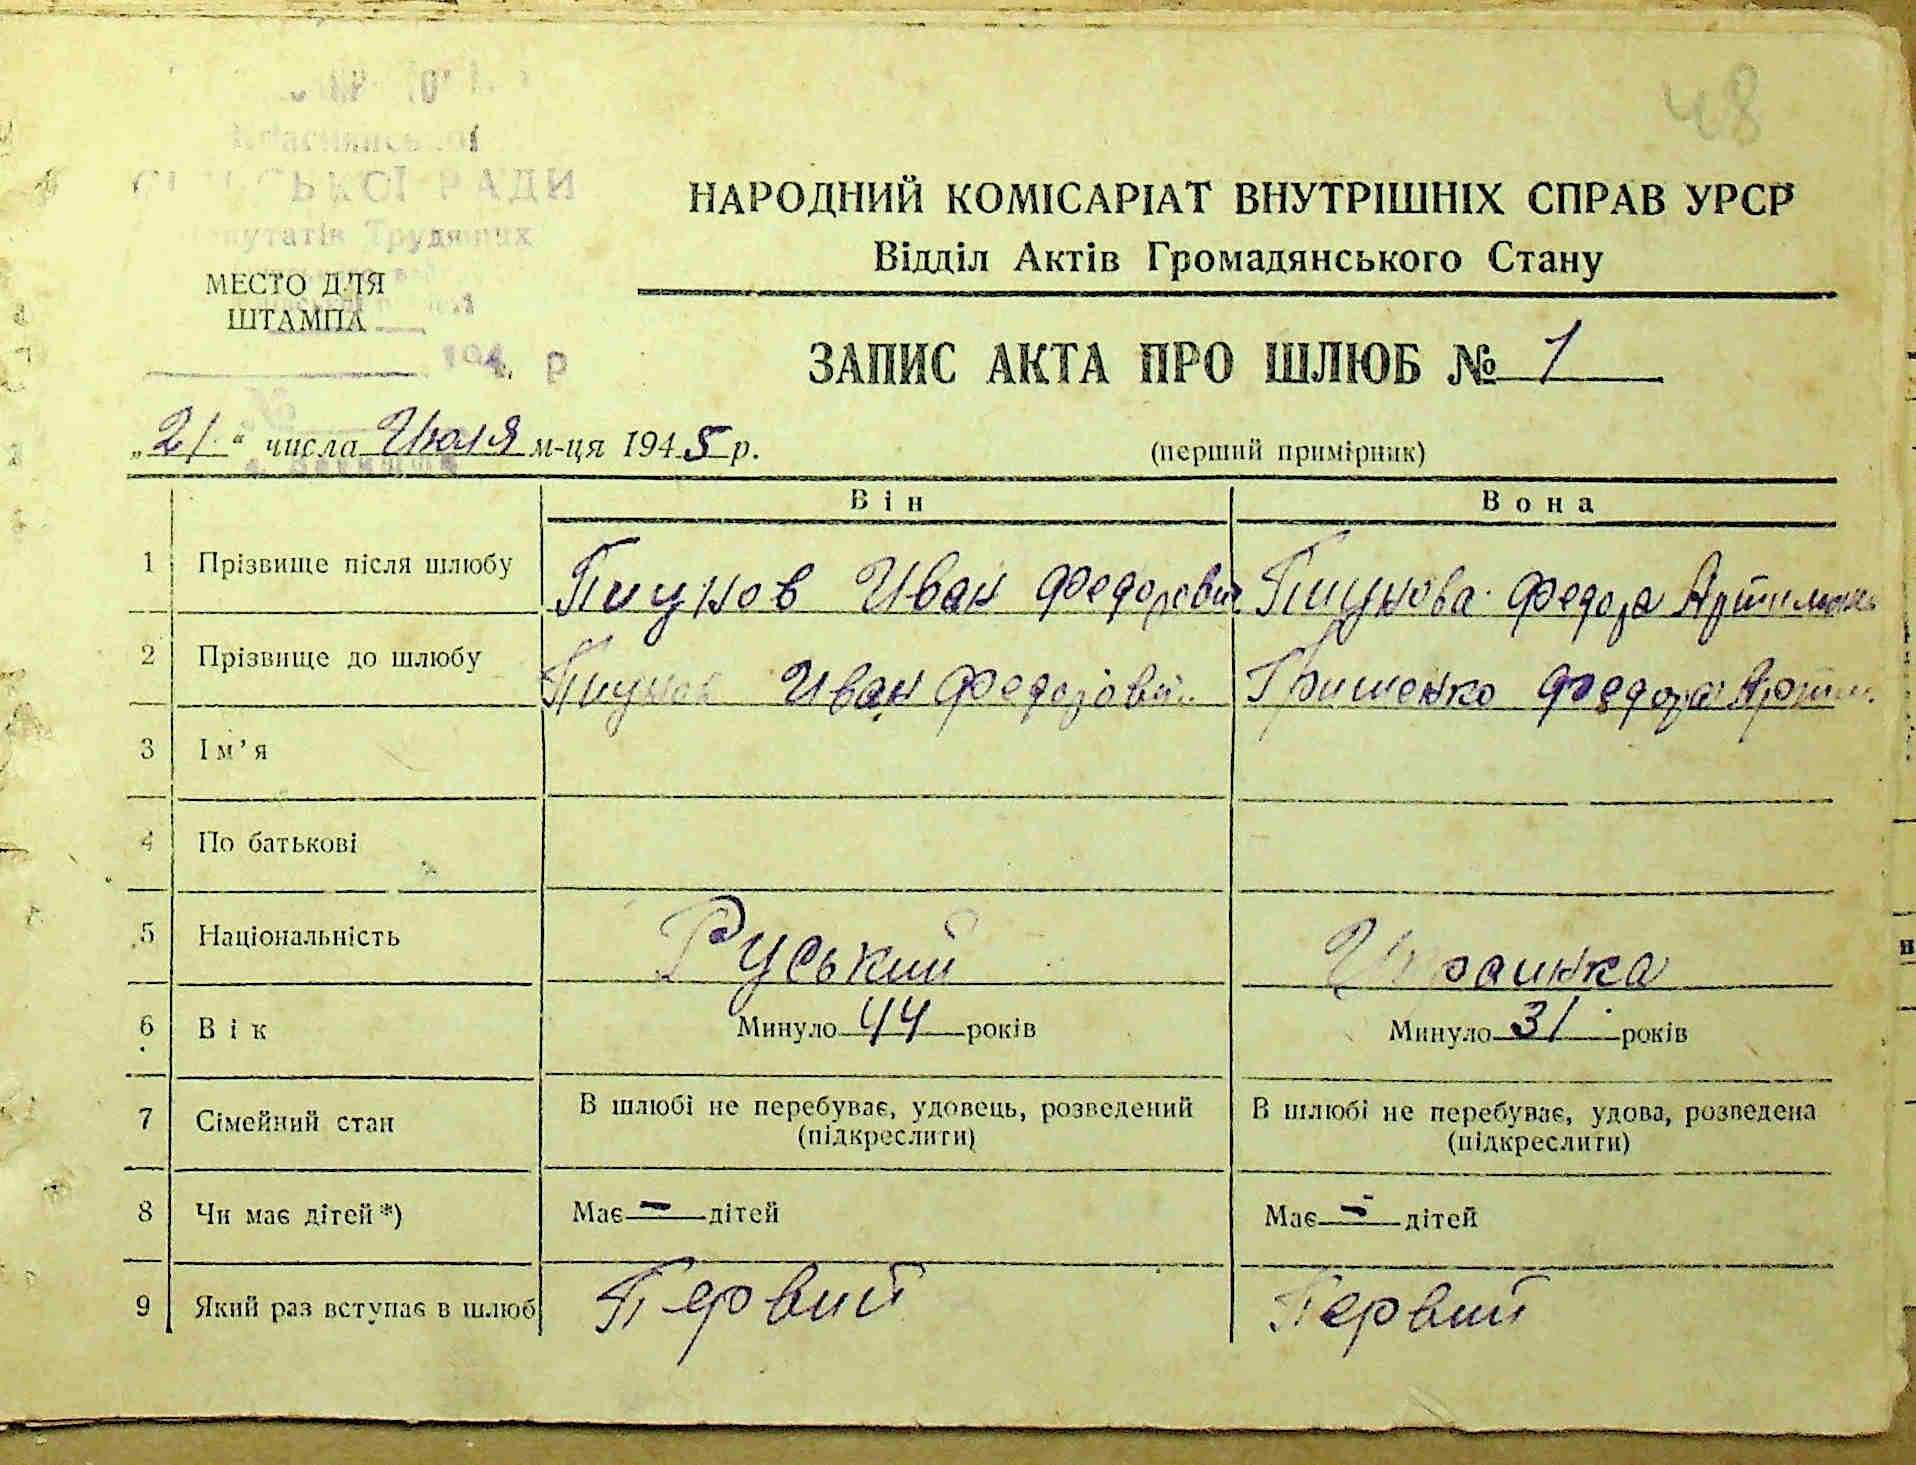 48
СЬКОЇ РАДИ
Трудящих
НАРОДНИЙ КОМІСАРІАТ ВНУТРІШНІХ СПРАВ УРСР
Відділ Актів Громадянського Стану
МЕСТО ДЛЯ
ШТАМПА
194 р
ЗАПИС АКТА ПРО ШЛЮБ № 1
„21“ числа Июля м-ця 1945 р.
(перший примірник)
Він Вона
1 Прізвище після шлюбу Пиунов Иван Федорович Пиунова Федора
2 Прізвище до шлюбу Пиунов Иван Федорович Гришенко Федора
3 Ім’я
4 По батькові
5 Національність Руський Украинка
6 Вік Минуло 44 років Минуло 31 років
7 Сімейний стан В шлюбі не перебуває, удовець, розведений В шлюбі не перебуває, удова, розведена
(підкреслити) (підкреслити)
8 Чи має дітей*) Має — дітей Має — дітей
9 Який раз вступає в шлюб Первий Первий